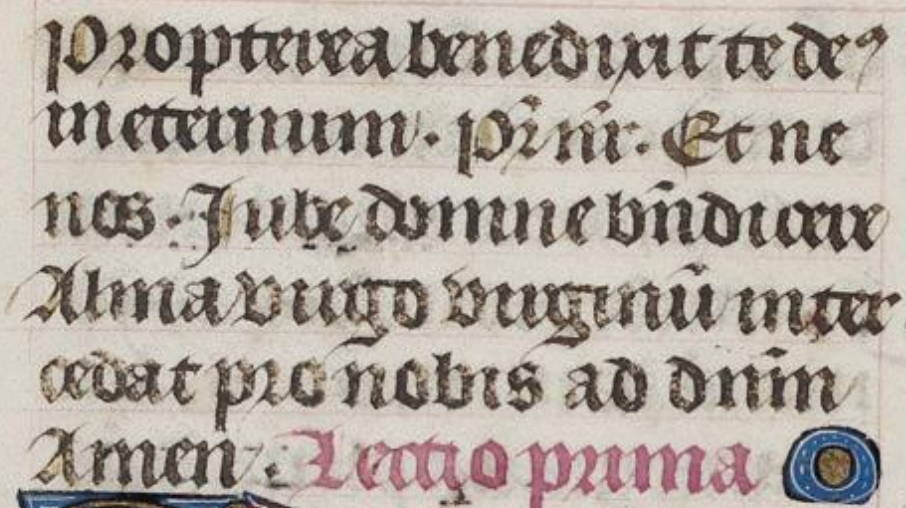 Propterea benedixit te deꝰ
in eternum. Pr̄ nr̄. Et ne
nos. Jube domine bn̄dicere
Alma virgo virginū inter
cedat pro nobis ad dn̄m
Amen. Lectio prima